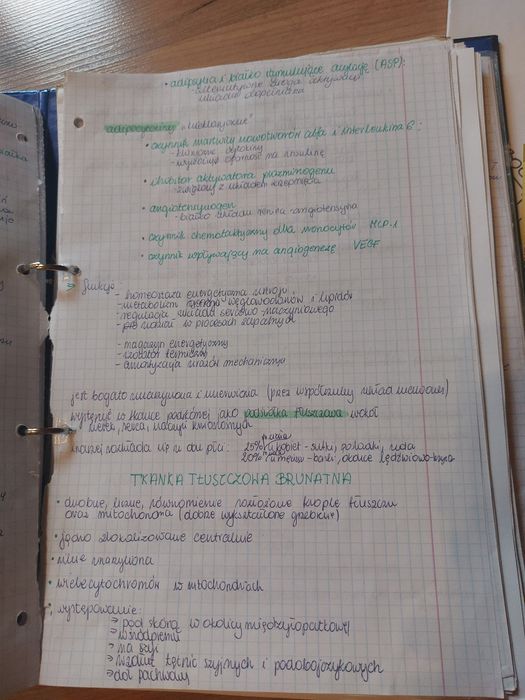 • adipsyna i białko stymulujące acylację (ASP):
- alternatywna droga aktywacji
układu dopełniacza
adipocytokiny "niekorzystne"
• czynnik martwicy nowotworów alfa i interleukina 6:
- kluczowe cytokiny
- wywołują oporność na insulinę
• inhibitor aktywatora plazminogenu
- związany z układem krzepnięcia
• angiotensynogen
- białko układu renina-angiotensyna
• czynnik chemotaktyczny dla monocytów MCP-1
• czynnik wpływający na angiogenezę VEGF
funkcje:
- homeostaza energetyczna ustroju
- metabolizm węglowodanów i lipidów
- regulacja układu sercowo-naczyniowego
- udział w procesach zapalnych
- magazyn energetyczny
- izolator termiczny
- amortyzacja urazów mechanicznych
jest bogato unaczyniona i unerwiona (przez współczulny układ nerwowy)
występuje w tkance podskórnej jako podściółka tłuszczowa wokół
nerek, serca,
inaczej rozkłada się w dwu płci: 25% u kobiet - sutki, pośladki, uda
20% u mężczyzn - barki, okolice lędźwiowo-krzyż
TKANKA TŁUSZCZOWA BRUNATNA
• drobne, liczne, równomiernie rozłożone krople tłuszczu
oraz mitochondria (dobrze wykształcone grzebienie)
• jądro zlokalizowane centralnie
• silnie unaczyniona
• wiele cytochromów w mitochondriach
• występowanie:
→ pod skórą w okolicy międzyłopatkowej
→ w śródpiersiu
→ na szyi
→ wzdłuż tętnic szyjnych i podobojczykowych
→ doł pachwowy